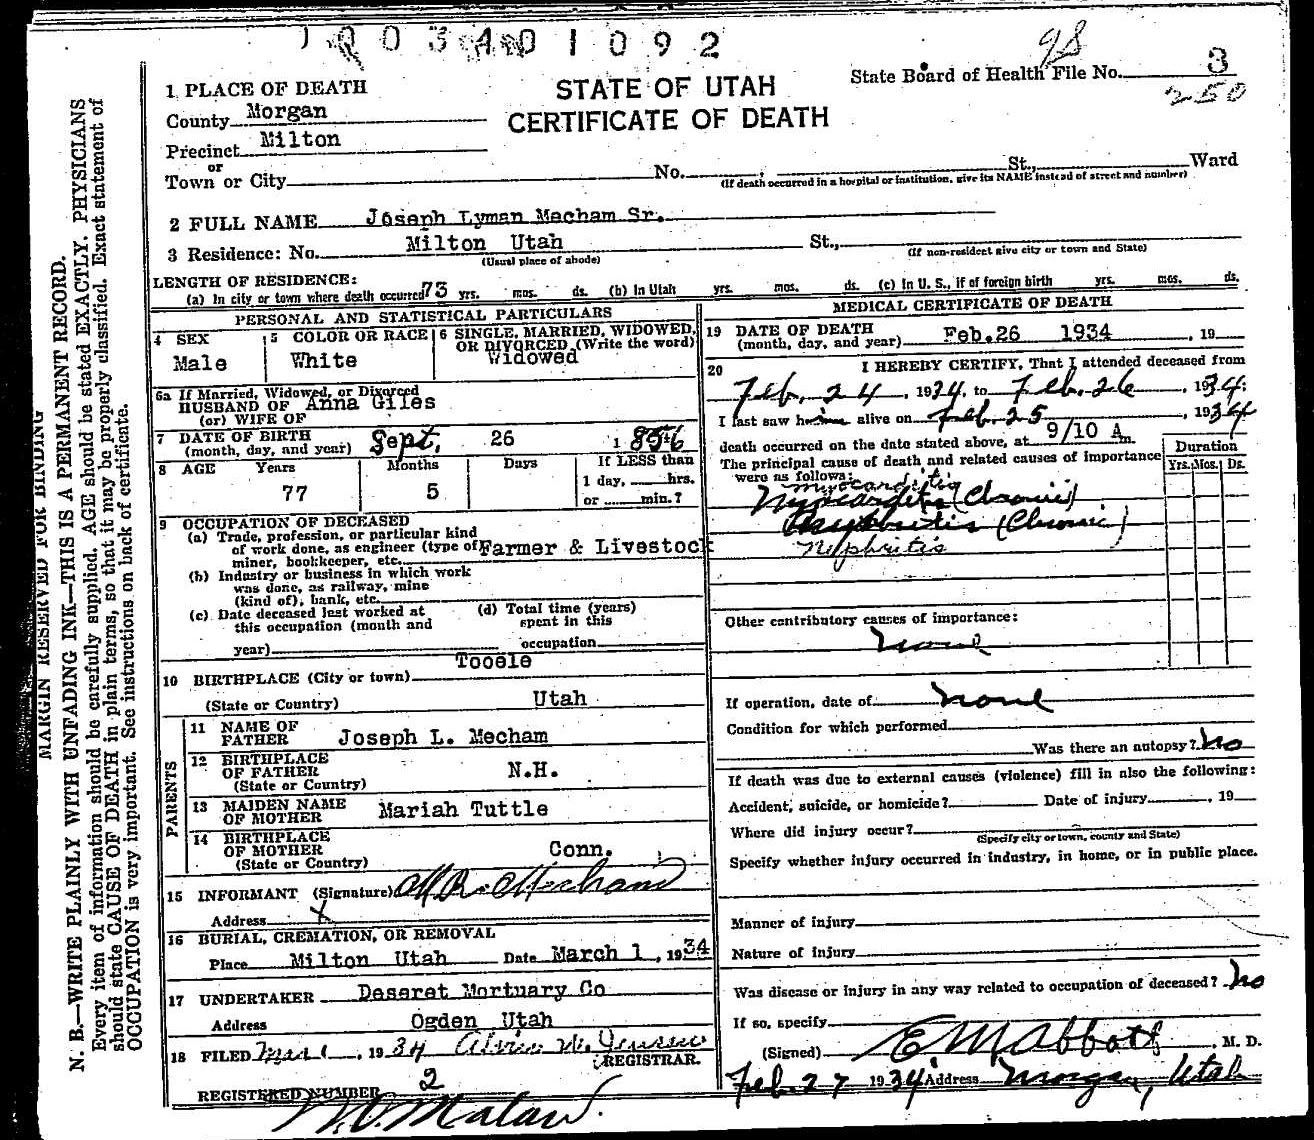 1 0 0 3 4 0 1 0 9 2
98
State Board of Health File No. 3
250
STATE OF UTAH
CERTIFICATE OF DEATH
1 PLACE OF DEATH
County Morgan
Precinct Milton
or
Town or City No. St., Ward
(If death occurred in a hospital or institution, give its NAME instead of street and number)
2 FULL NAME Joseph Lyman Mecham Sr.
3 Residence: No. Milton Utah St.,
(Usual place of abode) (If non-resident give city or town and State)
LENGTH OF RESIDENCE:
(a) In city or town where death occurred 73 yrs. mos. ds. (b) In Utah yrs. mos. ds. (c) In U. S., if of foreign birth yrs. mos. ds.
PERSONAL AND STATISTICAL PARTICULARS
4 SEX
Male
5 COLOR OR RACE
White
6 SINGLE, MARRIED, WIDOWED,
OR DIVORCED (Write the word)
Widowed
6a If Married, Widowed, or Divorced
HUSBAND OF Anna Giles
(or) WIFE OF
7 DATE OF BIRTH
(month, day, and year) Sept. 26 1856
8 AGE Years Months Days If LESS than
1 day, hrs.
77 5 or min.?
9 OCCUPATION OF DECEASED
(a) Trade, profession, or particular kind
of work done, as engineer (type of Farmer & Livestock
miner, bookkeeper, etc.
(b) Industry or business in which work
was done, as railway, mine
(kind of), bank, etc.
(c) Date deceased last worked at
this occupation (month and
year)
(d) Total time (years)
spent in this
occupation
10 BIRTHPLACE (City or town) Tooele
(State or Country) Utah
PARENTS
11 NAME OF
FATHER Joseph L. Mecham
12 BIRTHPLACE
OF FATHER N.H.
(State or Country)
13 MAIDEN NAME
OF MOTHER Mariah Tuttle
14 BIRTHPLACE
OF MOTHER Conn.
(State or Country)
15 INFORMANT (Signature)
Address x
16 BURIAL, CREMATION, OR REMOVAL
Place Milton Utah Date March 1, 1934
17 UNDERTAKER Deseret Mortuary Co
Address Ogden Utah
18 FILED Mar 1, 1934
REGISTRAR.
REGISTERED NUMBER 2
MEDICAL CERTIFICATE OF DEATH
19 DATE OF DEATH
(month, day, and year) Feb.26 1934, 19
20 I HEREBY CERTIFY, That I attended deceased from
Feb. 24, 1934, to Feb. 26, 1934:
I last saw him alive on Feb. 25, 1934
death occurred on the date stated above, at 9/10 A m.
The principal cause of death and related causes of importance
were as follows:
Duration
Yrs. Mos. Ds.
myocarditis
Myocarditis (Chronic)
Nephritis (Chronic)
Nephritis
Other contributory causes of importance:
none
If operation, date of none
Condition for which performed
Was there an autopsy? No
If death was due to external causes (violence) fill in also the following:
Accident, suicide, or homicide? Date of injury , 19
Where did injury occur?
(Specify city or town, county and State)
Specify whether injury occurred in industry, in home, or in public place.
Manner of injury
Nature of injury
Was disease or injury in any way related to occupation of deceased? No
If so, specify
(Signed) E M Abbott, M. D.
Feb. 27 1934 Address Morgan, Utah
MARGIN RESERVED FOR BINDING
N. B.—WRITE PLAINLY WITH UNFADING INK—THIS IS A PERMANENT RECORD.
Every item of information should be carefully supplied. AGE should be stated EXACTLY. PHYSICIANS
should state CAUSE OF DEATH in plain terms, so that it may be properly classified. Exact statement of
OCCUPATION is very important. See instructions on back of certificate.